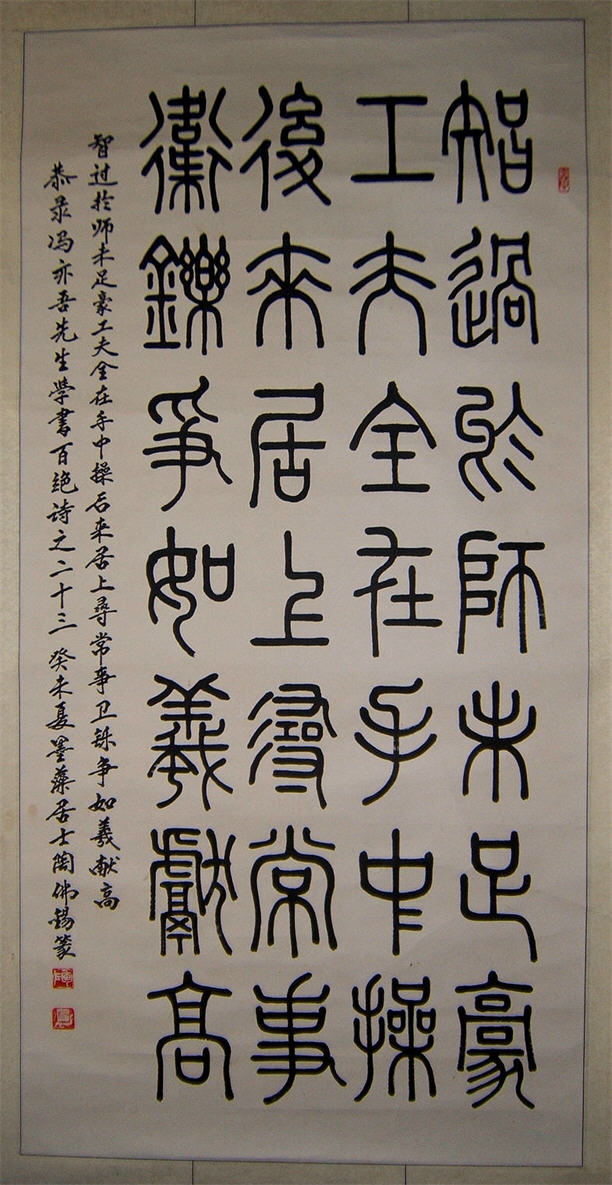 智過於師未足豪
工夫全在手中操
後來居上尋常事
衛鑠爭如羲獻高
智过於师未足豪工夫全在手中操后来居上尋常事卫铄争如羲献高
恭录冯亦吾先生學書百绝诗之二十三 癸未夏墨藻居士陶佛錫篆